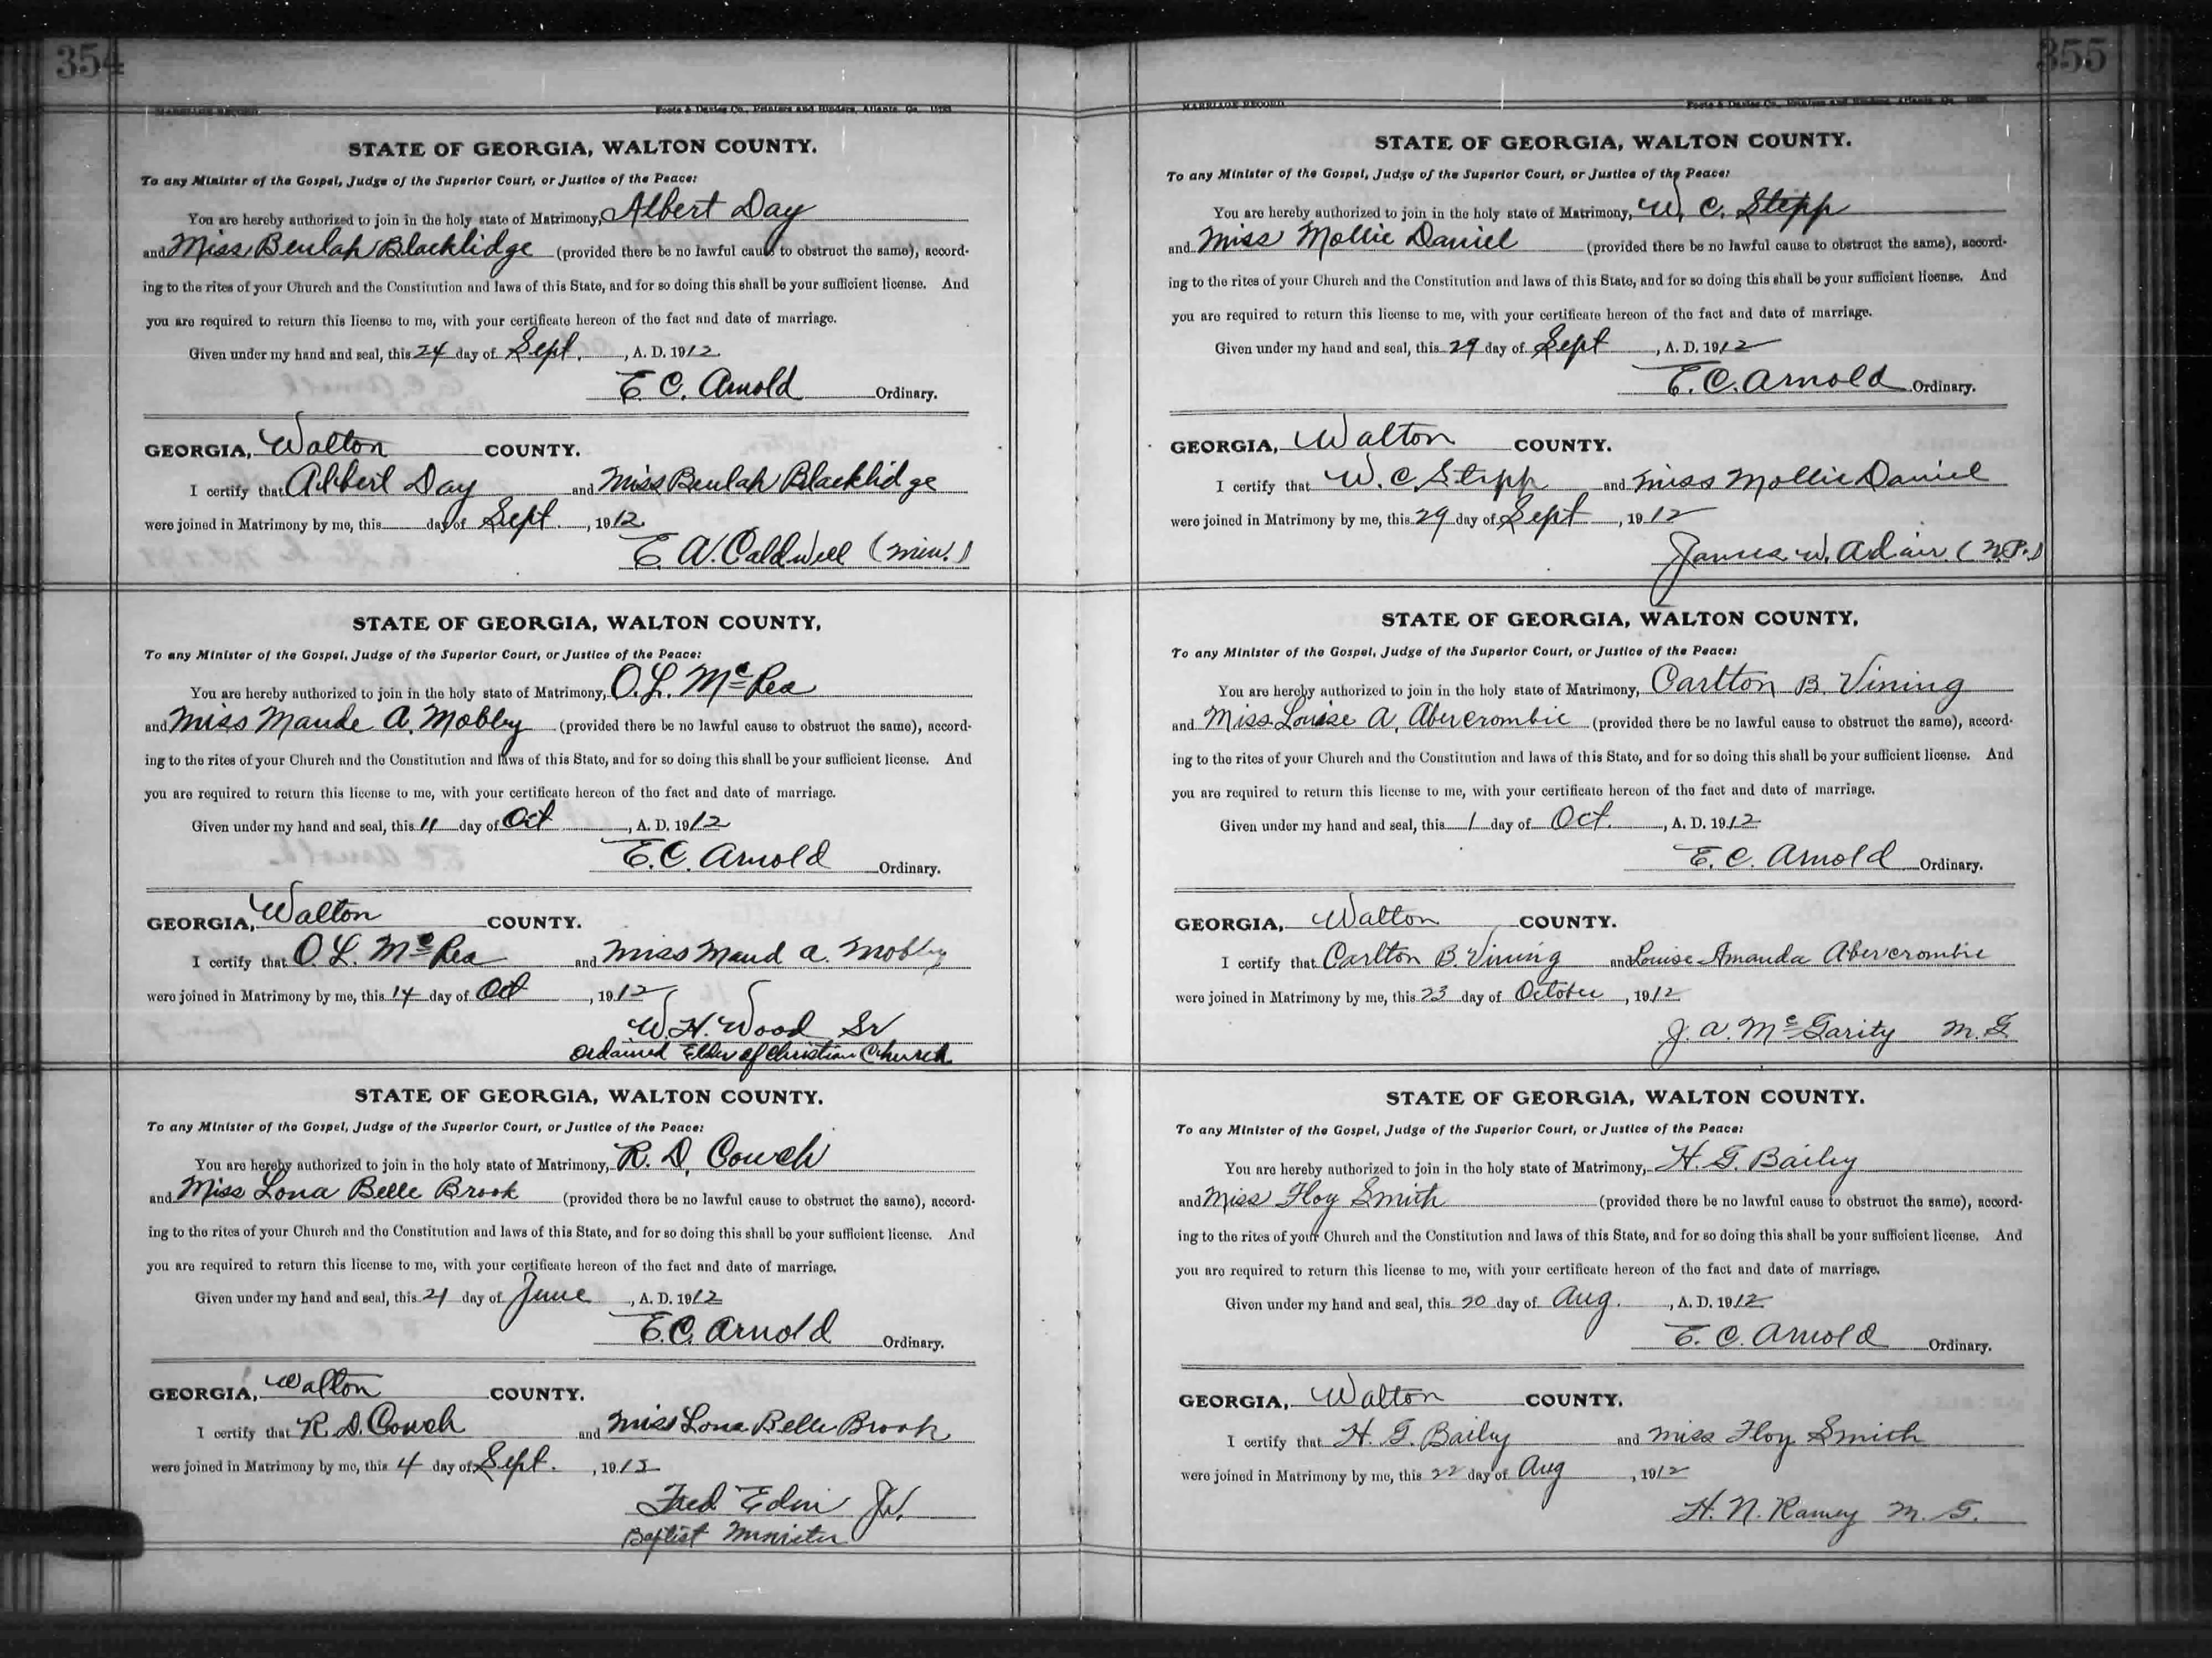 354
MARRIAGE RECORD
Foote & Davies Co., Printers and Binders, Atlanta, Ga.
STATE OF GEORGIA, WALTON COUNTY.
To any Minister of the Gospel, Judge of the Superior Court, or Justice of the Peace:
You are hereby authorized to join in the holy state of Matrimony, Albert Day
and Miss Beulah Blacklidge (provided there be no lawful cause to obstruct the same), accord-
ing to the rites of your Church and the Constitution and laws of this State, and for so doing this shall be your sufficient license. And
you are required to return this license to me, with your certificate hereon of the fact and date of marriage.
Given under my hand and seal, this 24 day of Sept. , A. D. 1912
E. C. Arnold Ordinary.
GEORGIA, Walton COUNTY.
I certify that Albert Day and Miss Beulah Blacklidge
were joined in Matrimony by me, this day of Sept. , 1912
E. A. Caldwell (Min.)
STATE OF GEORGIA, WALTON COUNTY,
To any Minister of the Gospel, Judge of the Superior Court, or Justice of the Peace:
You are hereby authorized to join in the holy state of Matrimony, O. L. McRea
and Miss Maude A. Mobley (provided there be no lawful cause to obstruct the same), accord-
ing to the rites of your Church and the Constitution and laws of this State, and for so doing this shall be your sufficient license. And
you are required to return this license to me, with your certificate hereon of the fact and date of marriage.
Given under my hand and seal, this 11 day of Oct , A. D. 1912
E. C. Arnold Ordinary.
GEORGIA, Walton COUNTY.
I certify that O. L. McRea and Miss Maud A. Mobley
were joined in Matrimony by me, this 14 day of Oct , 1912
W. H. Wood Sr
Ordained Elder of Christian Church
STATE OF GEORGIA, WALTON COUNTY.
To any Minister of the Gospel, Judge of the Superior Court, or Justice of the Peace:
You are hereby authorized to join in the holy state of Matrimony, R. D. Couch
and Miss Lona Belle Brook (provided there be no lawful cause to obstruct the same), accord-
ing to the rites of your Church and the Constitution and laws of this State, and for so doing this shall be your sufficient license. And
you are required to return this license to me, with your certificate hereon of the fact and date of marriage.
Given under my hand and seal, this 21 day of June , A. D. 1912
E. C. Arnold Ordinary.
GEORGIA, Walton COUNTY.
I certify that R. D. Couch and Miss Lona Belle Brook
were joined in Matrimony by me, this 4 day of Sept. , 1912
Fred Edin Jr.
Baptist Minister
355
MARRIAGE RECORD
Foote & Davies Co., Printers and Binders, Atlanta, Ga.
STATE OF GEORGIA, WALTON COUNTY.
To any Minister of the Gospel, Judge of the Superior Court, or Justice of the Peace:
You are hereby authorized to join in the holy state of Matrimony, W. C. Stepp
and Miss Mollie Daniel (provided there be no lawful cause to obstruct the same), accord-
ing to the rites of your Church and the Constitution and laws of this State, and for so doing this shall be your sufficient license. And
you are required to return this license to me, with your certificate hereon of the fact and date of marriage.
Given under my hand and seal, this 29 day of Sept , A. D. 1912
E. C. Arnold Ordinary.
GEORGIA, Walton COUNTY.
I certify that W. C. Stepp and Miss Mollie Daniel
were joined in Matrimony by me, this 29 day of Sept , 1912
James W. Adair (N.P.)
STATE OF GEORGIA, WALTON COUNTY,
To any Minister of the Gospel, Judge of the Superior Court, or Justice of the Peace:
You are hereby authorized to join in the holy state of Matrimony, Carlton B. Vining
and Miss Louise A. Abercrombie (provided there be no lawful cause to obstruct the same), accord-
ing to the rites of your Church and the Constitution and laws of this State, and for so doing this shall be your sufficient license. And
you are required to return this license to me, with your certificate hereon of the fact and date of marriage.
Given under my hand and seal, this 1 day of Oct. , A. D. 1912
E. C. Arnold Ordinary.
GEORGIA, Walton COUNTY.
I certify that Carlton B. Vining and Louise Amanda Abercrombie
were joined in Matrimony by me, this 23 day of October , 1912
J. A. McGarity M. G.
STATE OF GEORGIA, WALTON COUNTY.
To any Minister of the Gospel, Judge of the Superior Court, or Justice of the Peace:
You are hereby authorized to join in the holy state of Matrimony, H. G. Baily
and Miss Floy Smith (provided there be no lawful cause to obstruct the same), accord-
ing to the rites of your Church and the Constitution and laws of this State, and for so doing this shall be your sufficient license. And
you are required to return this license to me, with your certificate hereon of the fact and date of marriage.
Given under my hand and seal, this 20 day of Aug. , A. D. 1912
E. C. Arnold Ordinary.
GEORGIA, Walton COUNTY.
I certify that H. G. Baily and Miss Floy Smith
were joined in Matrimony by me, this 22 day of Aug , 1912
H. N. Ramey M. G.